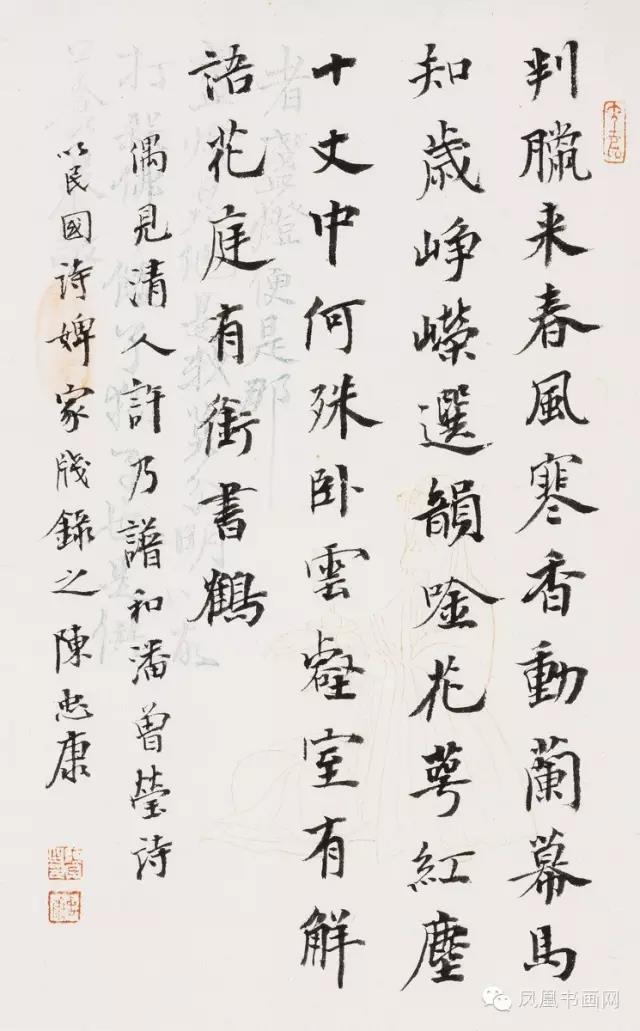 判臘来春風寒香動蘭幕馬
知歲崢嶸選韻唫花萼紅塵
十丈中何殊卧雲壑室有解
語花庭有銜書鶴
偶見清人許乃譜和潘曾瑩詩
以民國詩婢家牋錄之陳忠康
者盞燈便是那
凤凰书画网